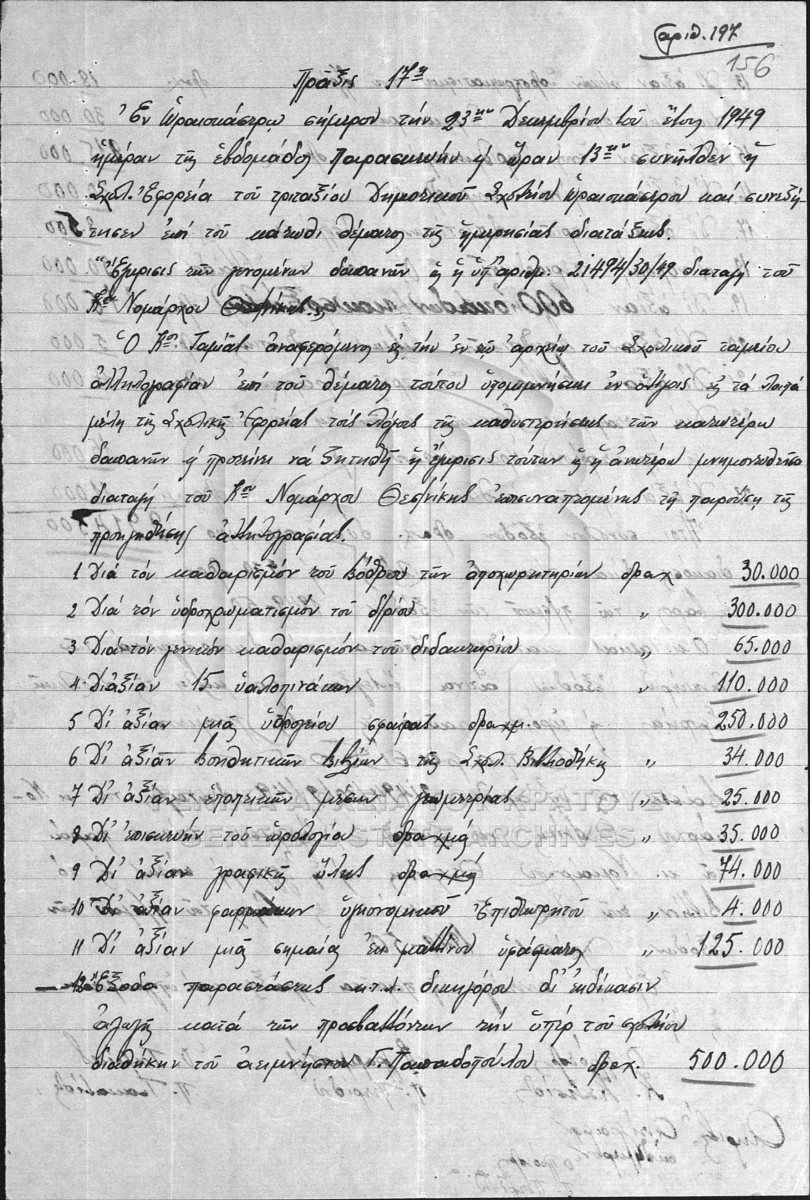 αριθ. 197
156
Πρᾶξις 17η
Ἐν Ὡραιοκάστρῳ σήμερον τὴν 23ην Δεκεμβρίου τοῦ ἔτους 1949
ἡμέραν τῆς ἑβδομάδος Παρασκευὴν κ' ὥραν 13ην συνῆλθεν ἡ
Σχολ. Ἐφορεία τοῦ τριταξίου Δημοτικοῦ Σχολείου Ὡραιοκάστρου καὶ συνεζή
τησεν ἐπὶ τοῦ κάτωθι θέματος τῆς ἡμερησίας διατάξεως.
"Ἔγκρισις τῶν γενομένων δαπανῶν ὑπ' ἀριθμ. 21494/30/49 διαταγὴ τοῦ
κου Νομάρχου
Ὁ κος Ταμίας ἀναφερόμενος εἰς τὴν ἐν τῷ ἀρχείῳ τοῦ Σχολικοῦ ταμείου
ἀλληλογραφίαν ἐπὶ τοῦ θέματος τούτου ὑπομιμνήσκει ἐν ὀλίγοις εἰς τὰ λοιπὰ
μέλη τῆς Σχολικῆς Ἐφορείας τοὺς λόγους τῆς καθυστερήσεως τῶν κατωτέρω
δαπανῶν κ' προτείνει νὰ ζητηθῇ ἡ ἔγκρισις τούτων ἀνωτέρω μνημονευθεῖσα
διαταγὴ τοῦ κου Νομάρχου Θεσ/νίκης ἐπισυναπτομένης τῇ παρούσῃ τῆς
προηγηθείσης ἀλληλογραφίας.
1 Διὰ τὸν καθαρισμὸν τοῦ βόθρου τῶν ἀποχωρητηρίων δραχ 30.000
2 Διὰ τὸν ὑδροχρωματισμὸν τοῦ δ/ρίου " 300.000
3 Διὰ τὸν γενικὸν καθαρισμὸν τοῦ διδακτηρίου " 65.000
4 Δι ἀξίαν 15 ὑαλοπινάκων " 110.000
5 Δι' ἀξίαν μιᾶς ὑδρογείου σφαίρας δραχμ. 250.000
6 Δι' ἀξίαν βοηθητικῶν βιβλίων τῆς Σχολ. Βιβλιοθήκης " 34.000
7 Δι' ἀξίαν ἐποπτικῶν μέσων γεωμετρίας " 25.000
8 Δι' ἐπισκευὴν τοῦ ὡρολογίου δραχμὰς " 35.000
9 Δι' ἀξίαν γραφικῆς ὕλης δραχμὰς " 74.000
10 Δι' ἀξίαν φαρμάκων ὑγειονομικοῦ Ἐπιθεωρητοῦ " 4.000
11 Δι' ἀξίαν μιᾶς σημαίας ἐκ μαλλίνου ὑφάσματος " 125.000
12 Ἔξοδα παραστάσεως κ.τ.λ. δικηγόρου δι' ἐκδίκασιν
ἀγωγῆς κατὰ τῶν προσβαλλόντων τὴν ὑπὲρ τοῦ σχολείου
διαθήκην τοῦ ἀειμνήστου Γ. Παπαδοπούλου δραχ. 500.000